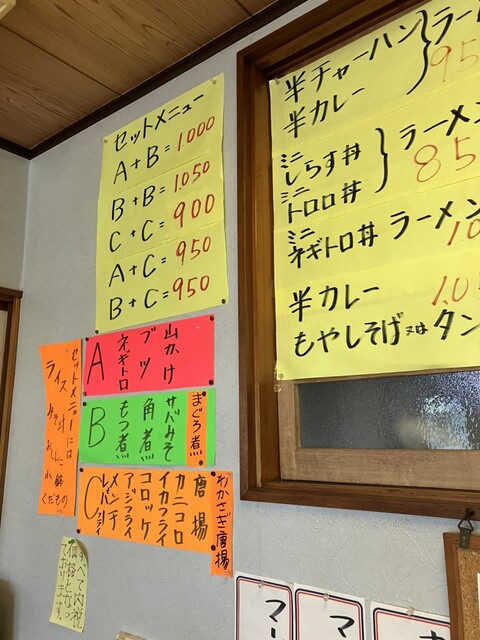 セットメニュー
A+B=1.000
B+B=1.050
C+C=900
A+C=950
B+C=950
半チャーハン
半カレー
ラー
95
ミニ
しらす丼
ミニ
トロロ丼
ラーメン
85
ミニ
ネギトロ丼 ラーメン
1.0
半カレー 1.0
もやしそば又はタン
A
山かけ
ブツ
ネギトロ
B
サバみそ
角煮
もつ煮
まぐろ煮
C
唐揚
カニコロ
イカフライ
コロッケ
アジフライ
メンチ
レバーフライ
わかさぎ唐揚
セットメニューには
ライス
みそ汁
おしんこ
小鉢
くだもの
すべて内税
価格となっ
ております。
マー
マ